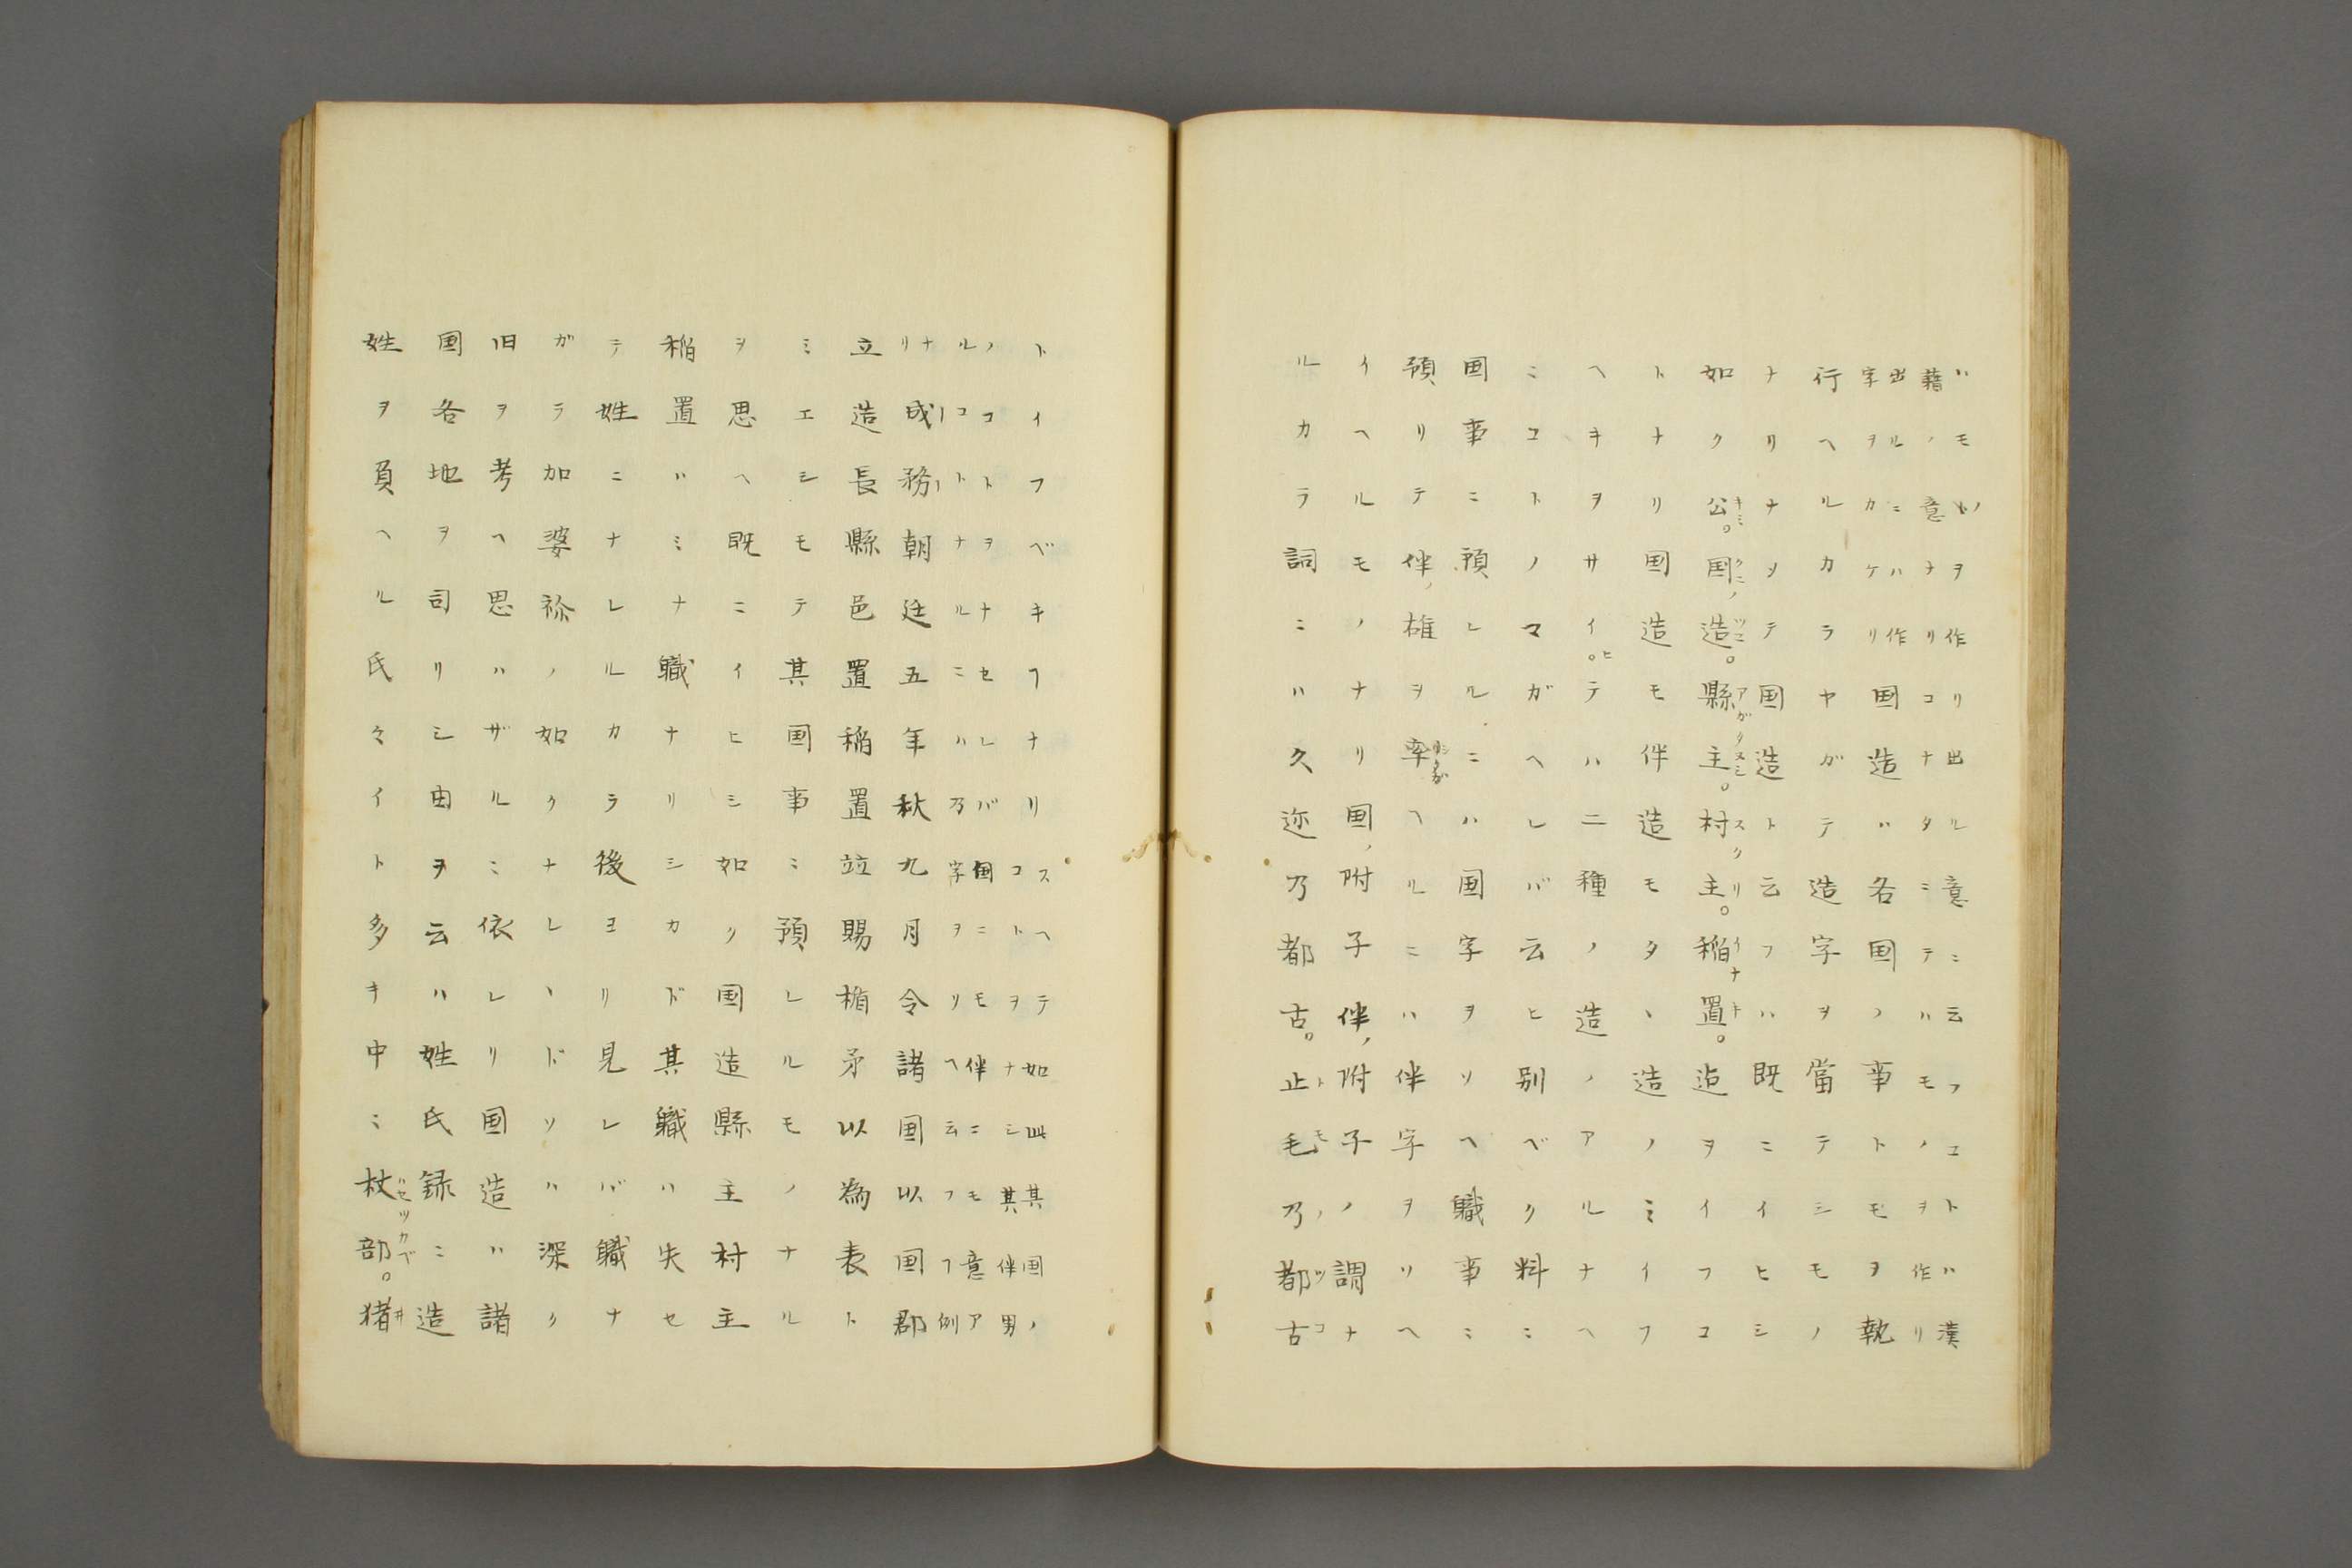 ハモノヲ作リ出ル意ニ云フコトハ漢
藉ノ意ナリコナタミテハモノヲ作リ
出ルニハ作
字ヲカケリ国造ハ各国ノ事トモヲ執
行ヘルカラヤガテ造字ヲ當テシモノ
ナリナソテ国造ト云フハ既ニイヒシ
如ク公。国ノ造。縣主。村主。稲置。迠ヲイフコ
トナリ国造モ伴造モタヽ造ノミイフ
ヘキヲサイヒ。テハ二種ノ造ノアルナヘ
ニコトノマガヘレバ云ヒ別ベク料ミ
国事ニ預レルニハ国字ヲソヘ職事ミ
預リテ伴ノ雄ヲ率ヘルニハ伴字ヲソヘ
イヘルモノナリ国ノ附子伴ノ附子ノ謂ナ
ルカラ詞ニハ久迩乃都古。止毛乃都古
トイフベキフナリスヘテ如此其国ノ
コトヲナシ其伴男
ノコトヲナセレバ国ニモ伴ニモ意ア
ルコトナルニハ乃字ヲソヘ云フフ例
ナリ成務朝廷五年秋九月令諸国以国郡
立造長縣邑置稲置竝賜楯矛以為表ト
ミエシモテ其国事ミ預レルモノナル
ヲ思ヘ既ニイヒシ如ク国造縣主村主
稲置ハミナ職ナリシカド其職ハ失セ
テ姓ニナレルカラ後ヨリ見レバ職ナ
ガラ加婆祢ノ如クナレヽドソハ深ク
旧ヲ考ヘ思ハザルミ依レリ国造ハ諸
国各地ヲ司リシ由ヲ云ハ姓氏録ニ造
姓ヲ負ヘル氏々イト多キ中ミ杖部。猪